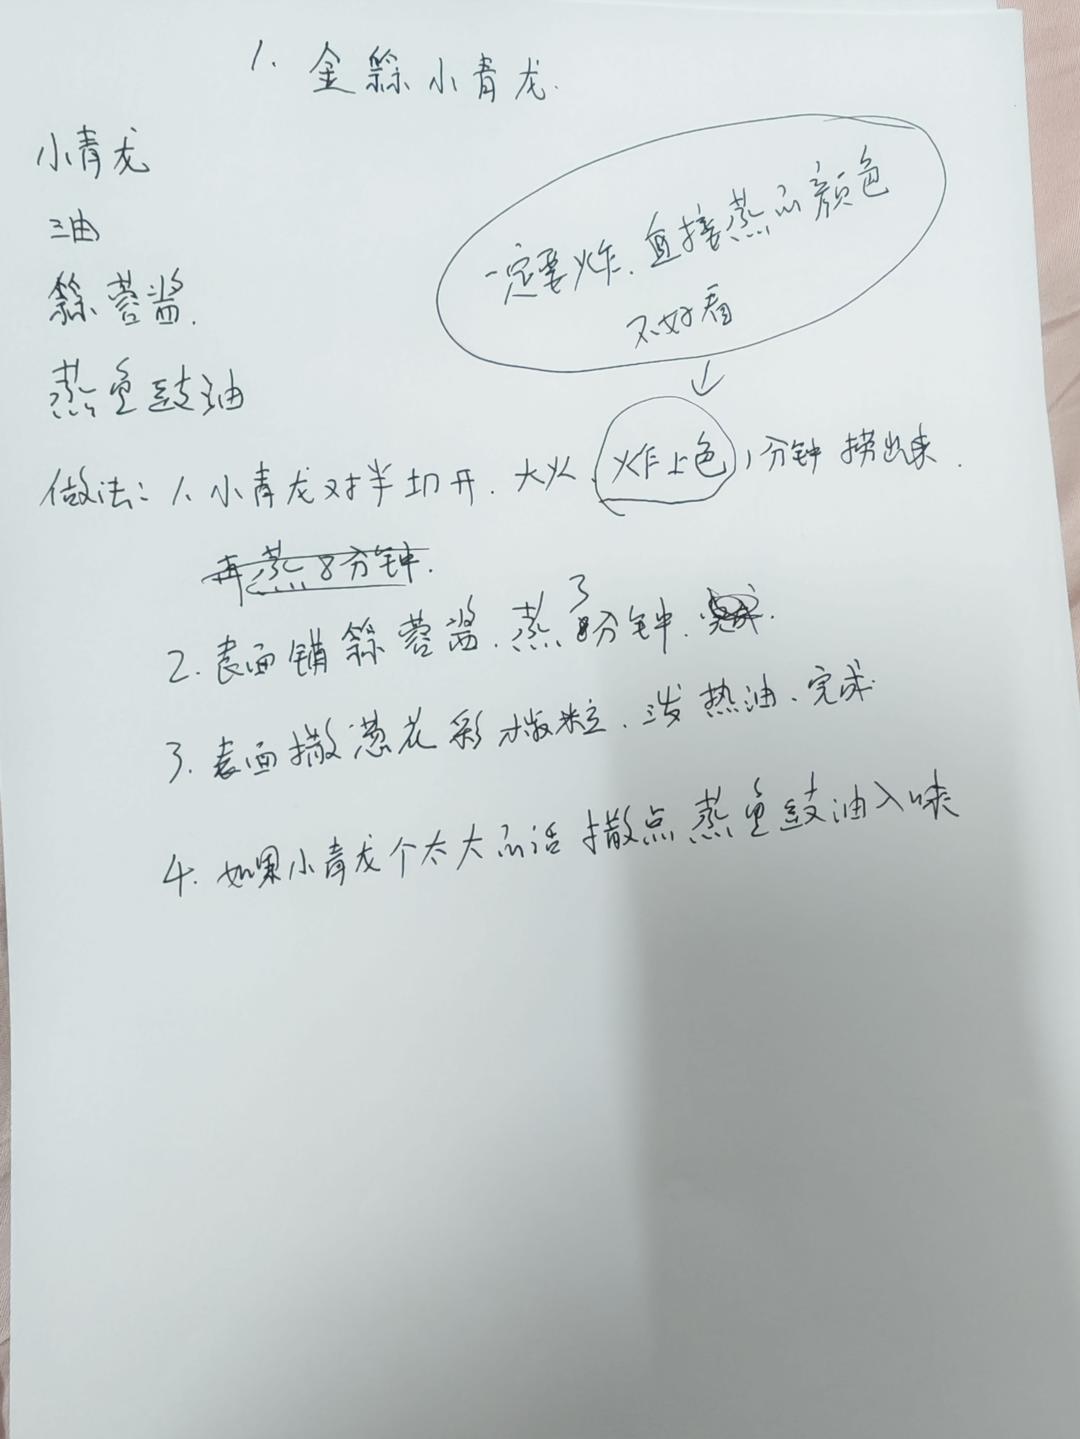 1. 金蒜小青龙.
小青龙
油
蒜蓉酱.
蒸鱼豉油
一定要炸.直接蒸的颜色
不好看
做法: 1.小青龙对半切开.大火.炸上色1分钟捞出来.
再蒸8分钟.
2.表面铺蒜蓉酱.蒸3分钟.
3.表面撒葱花彩椒粒.泼热油.完成.
4.如果小青龙个太大的话撒点蒸鱼豉油入味